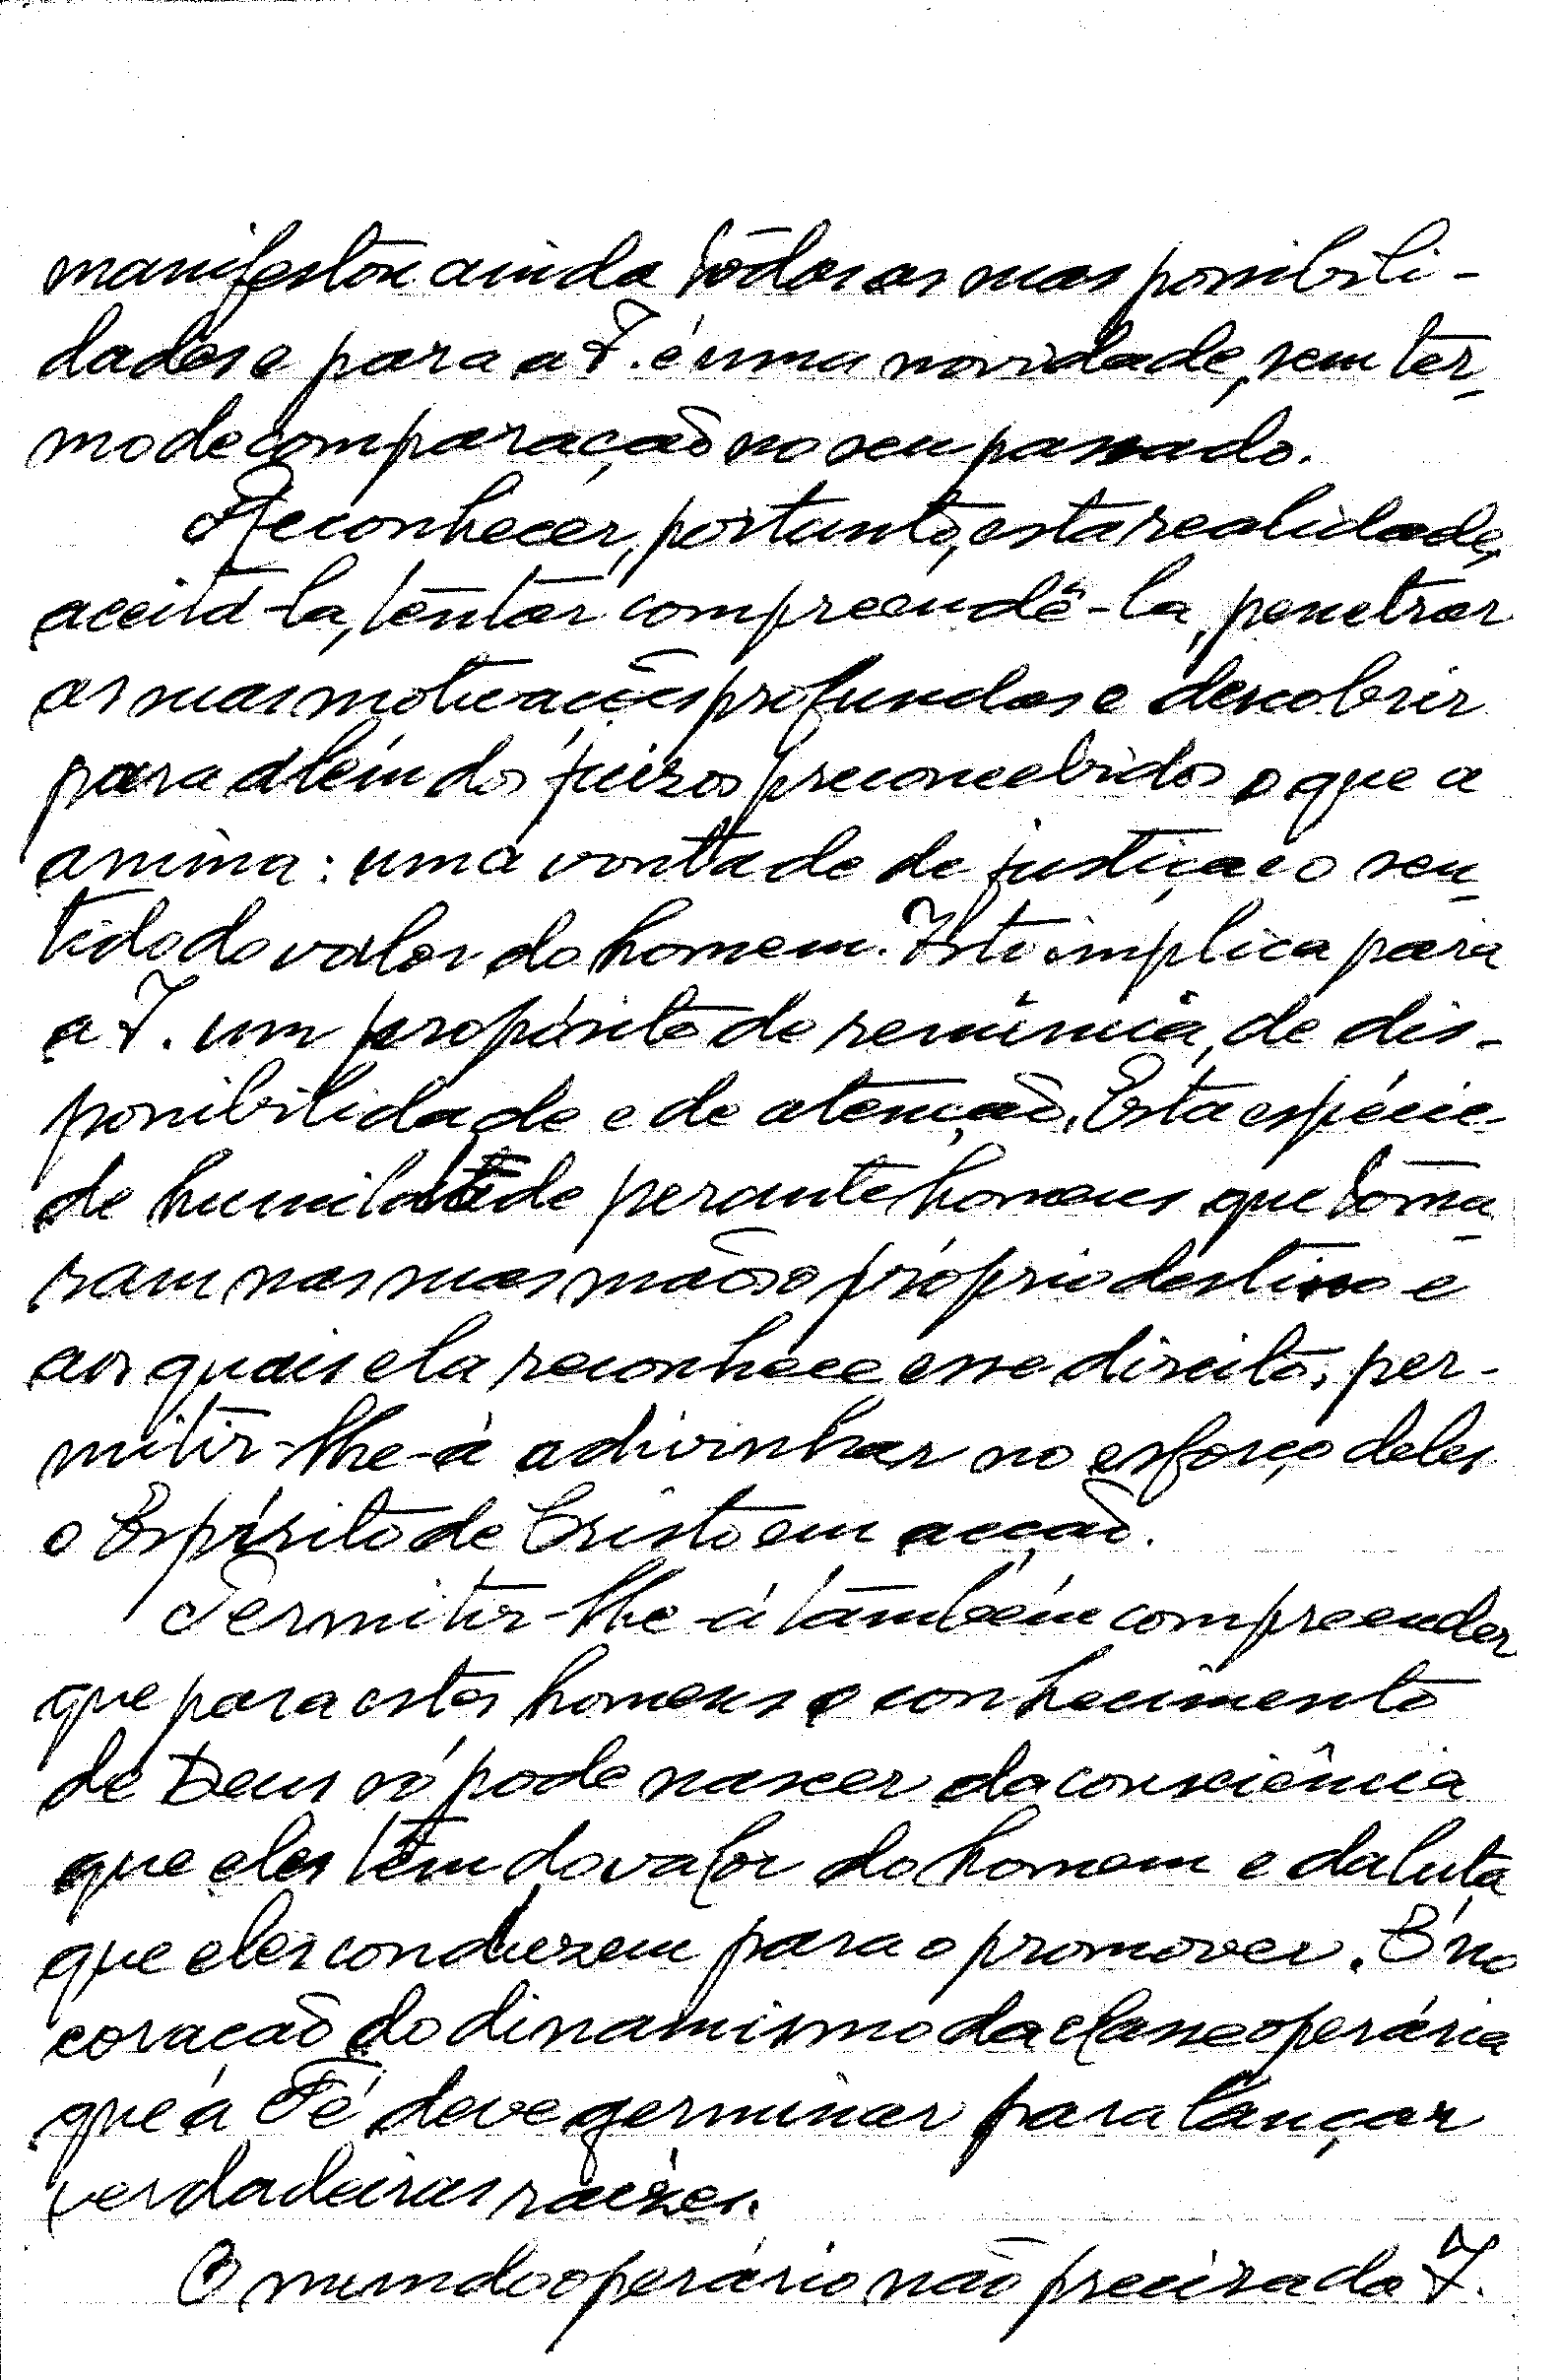 manifestou ainda tôdas as suas possibili-
dades e para a I. é uma novidade, sem ter-
mo de comparação no seu passado.
Reconhecer, portanto, esta realidade,
aceitá-la, tentar compreendê-la, penetrar
as suas motivações profundas e descobrir
para além dos juízos preconcebidos o que a
anima: uma vontade de justiça e o sen-
tido do valor do homem. Isto implica para
a I. um propósito de renúncia, de dis-
ponibilidade e de atenção. Esta espécie
de humildade perante homens que toma-
ram nas suas mãos o próprio destino e
aos quais ela reconhece esse direito, per-
mitir-lhe-á adivinhar no esforço deles
o Espírito de Cristo em acção.
Permitir-lhe-á também compreender
que para estes homens o conhecimento
de Deus só pode nascer da consciência
que eles têm do valor do homem e da luta
que eles conduzem para o promover. É no
coração do dinamismo da classe operária
que a Fé deve germinar para lançar
verdadeiras raízes.
O mundo operário não precisa da I.